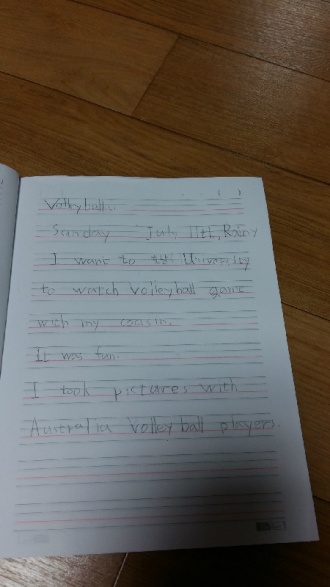 Volleyball.
Sunday July 11th, Rainy
I want to the University
to watch Volleyball game
with my cousin.
It was fun.
I took pictures with
Australia Volleyball players.